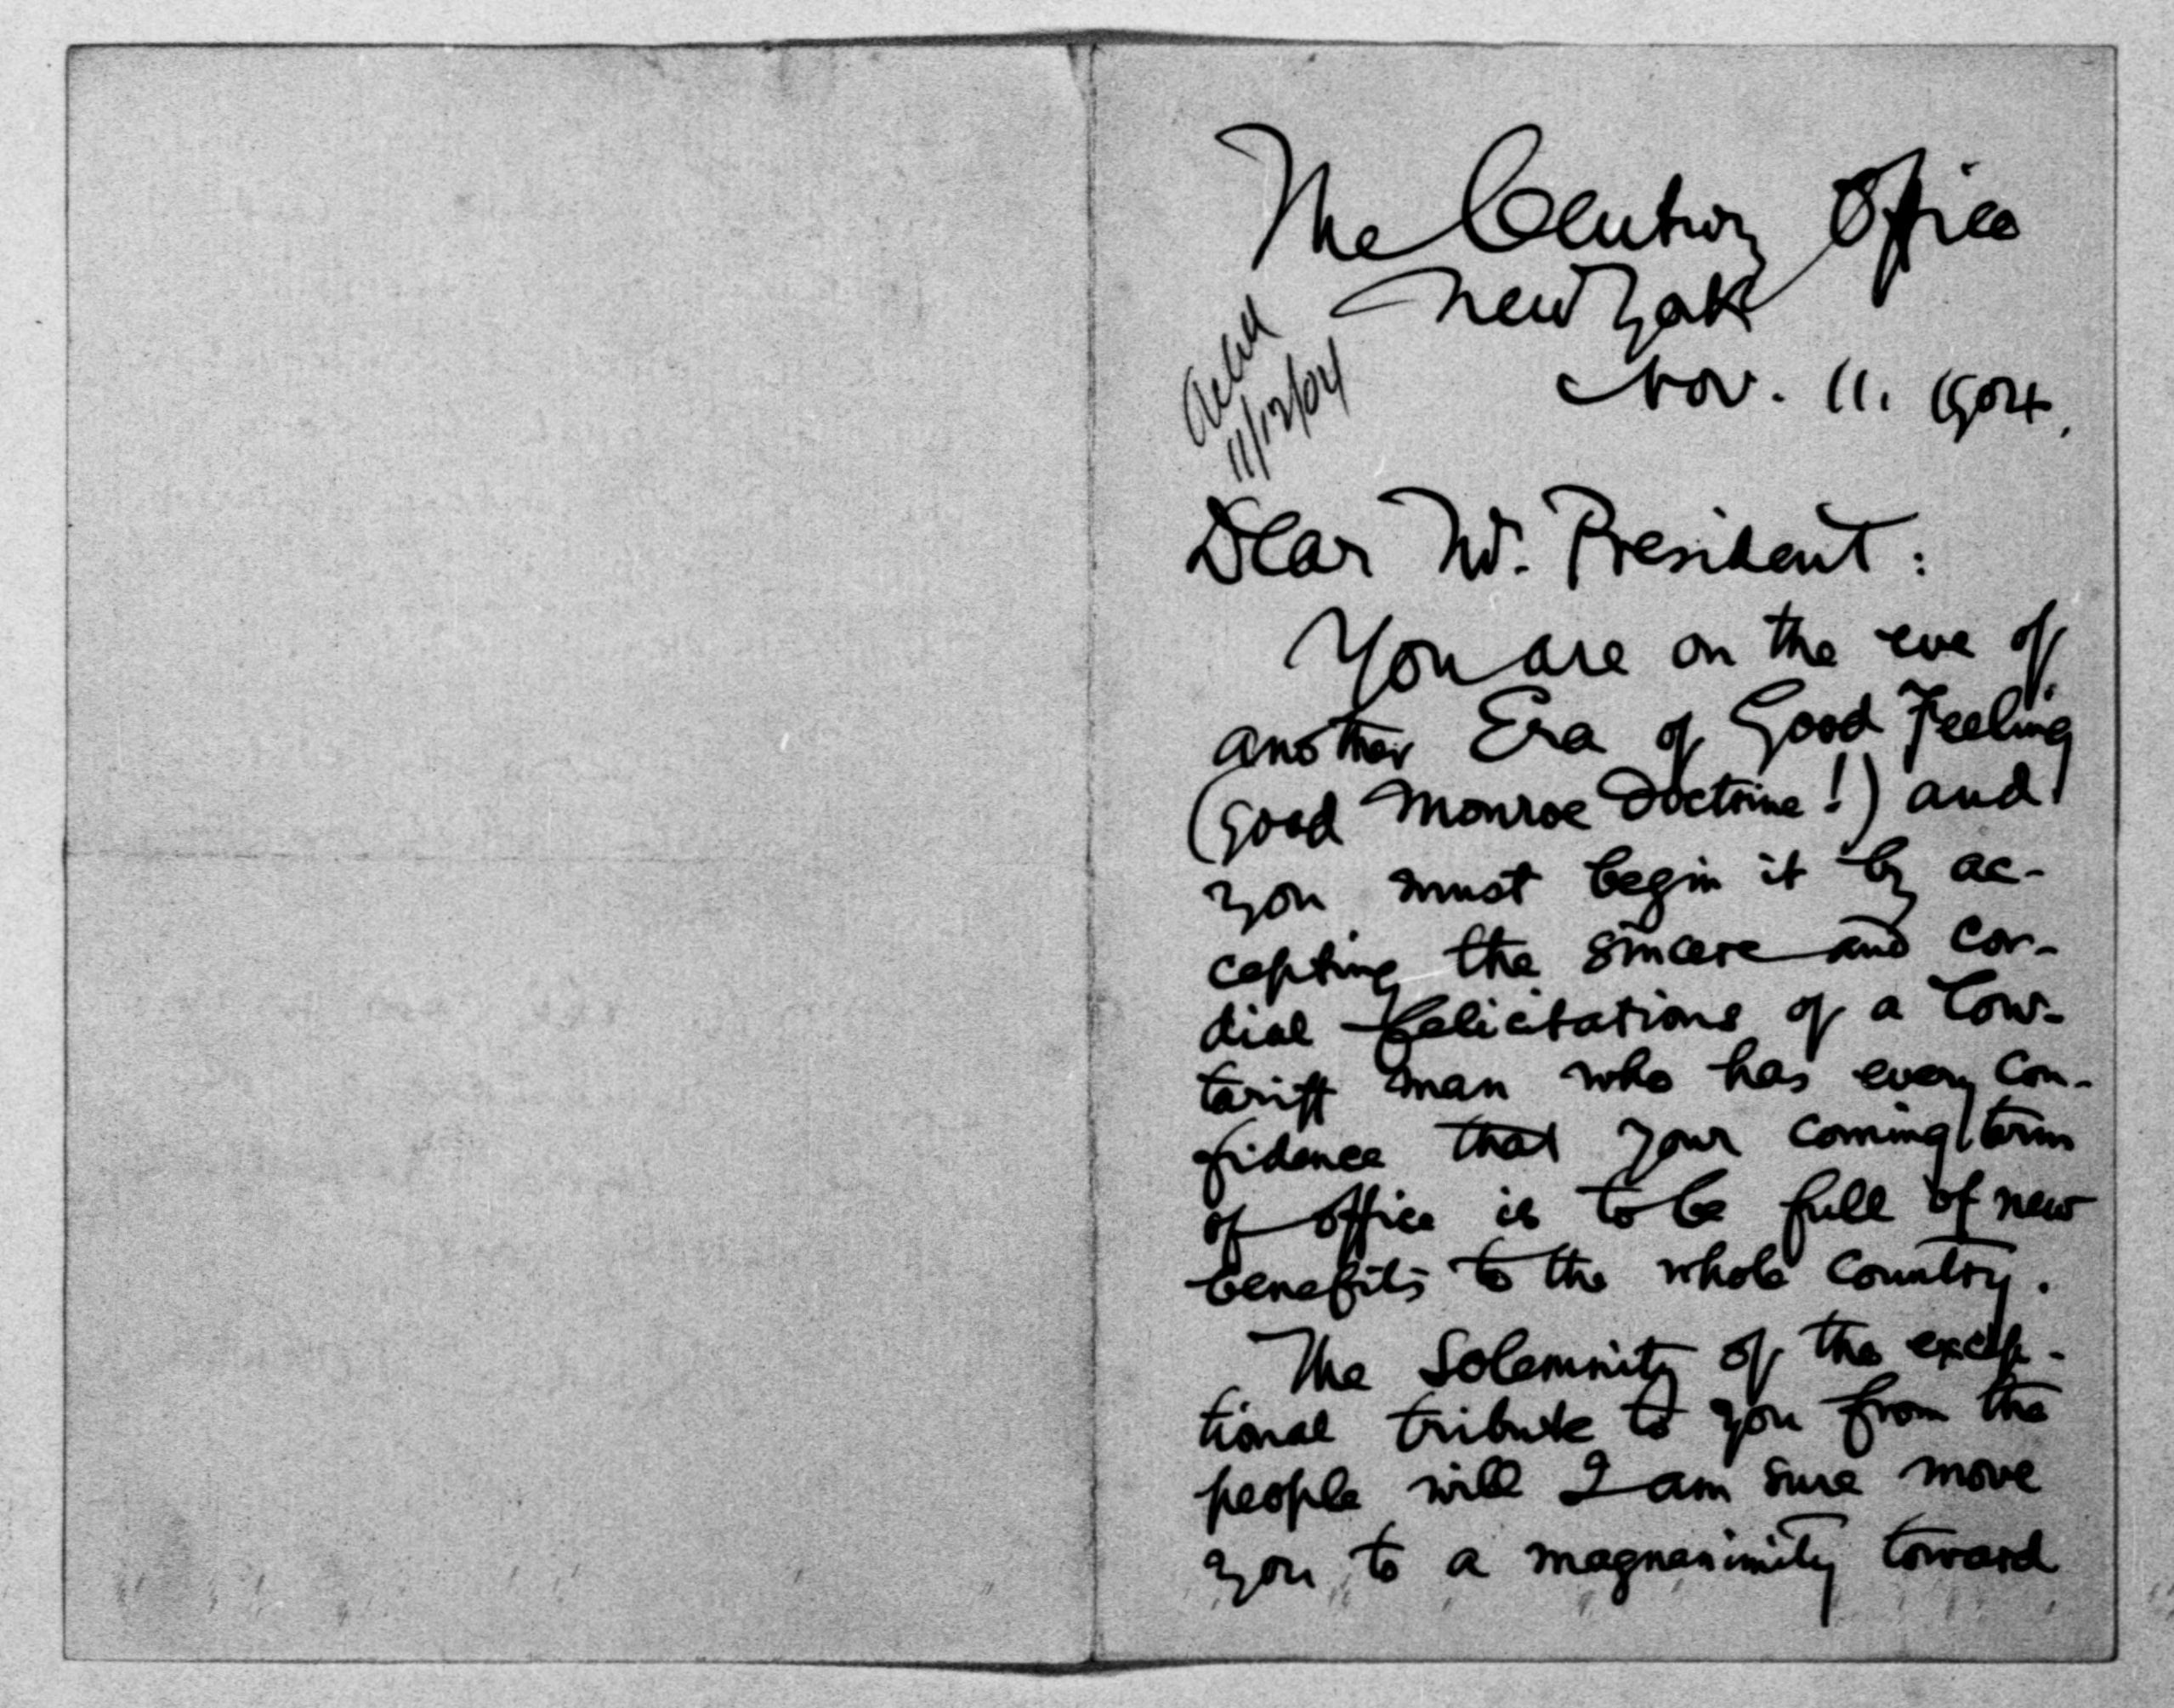 The Century Office
New York
Nov. 11. 1904.
Ackd
11/12/04
Dear Mr. President:
You are on the eve of
another Era of Good Feeling
(good Monroe Doctrine!) and
you must begin it by ac-
cepting the sincere and cor-
dial felicitations of a low-
tariff man who has every con-
fidence that your coming term
of office is to be full of new
benefits to the whole country.
The solemnity of the excep-
tional tribute to you from the
people will I am sure move
you to a magnanimity toward